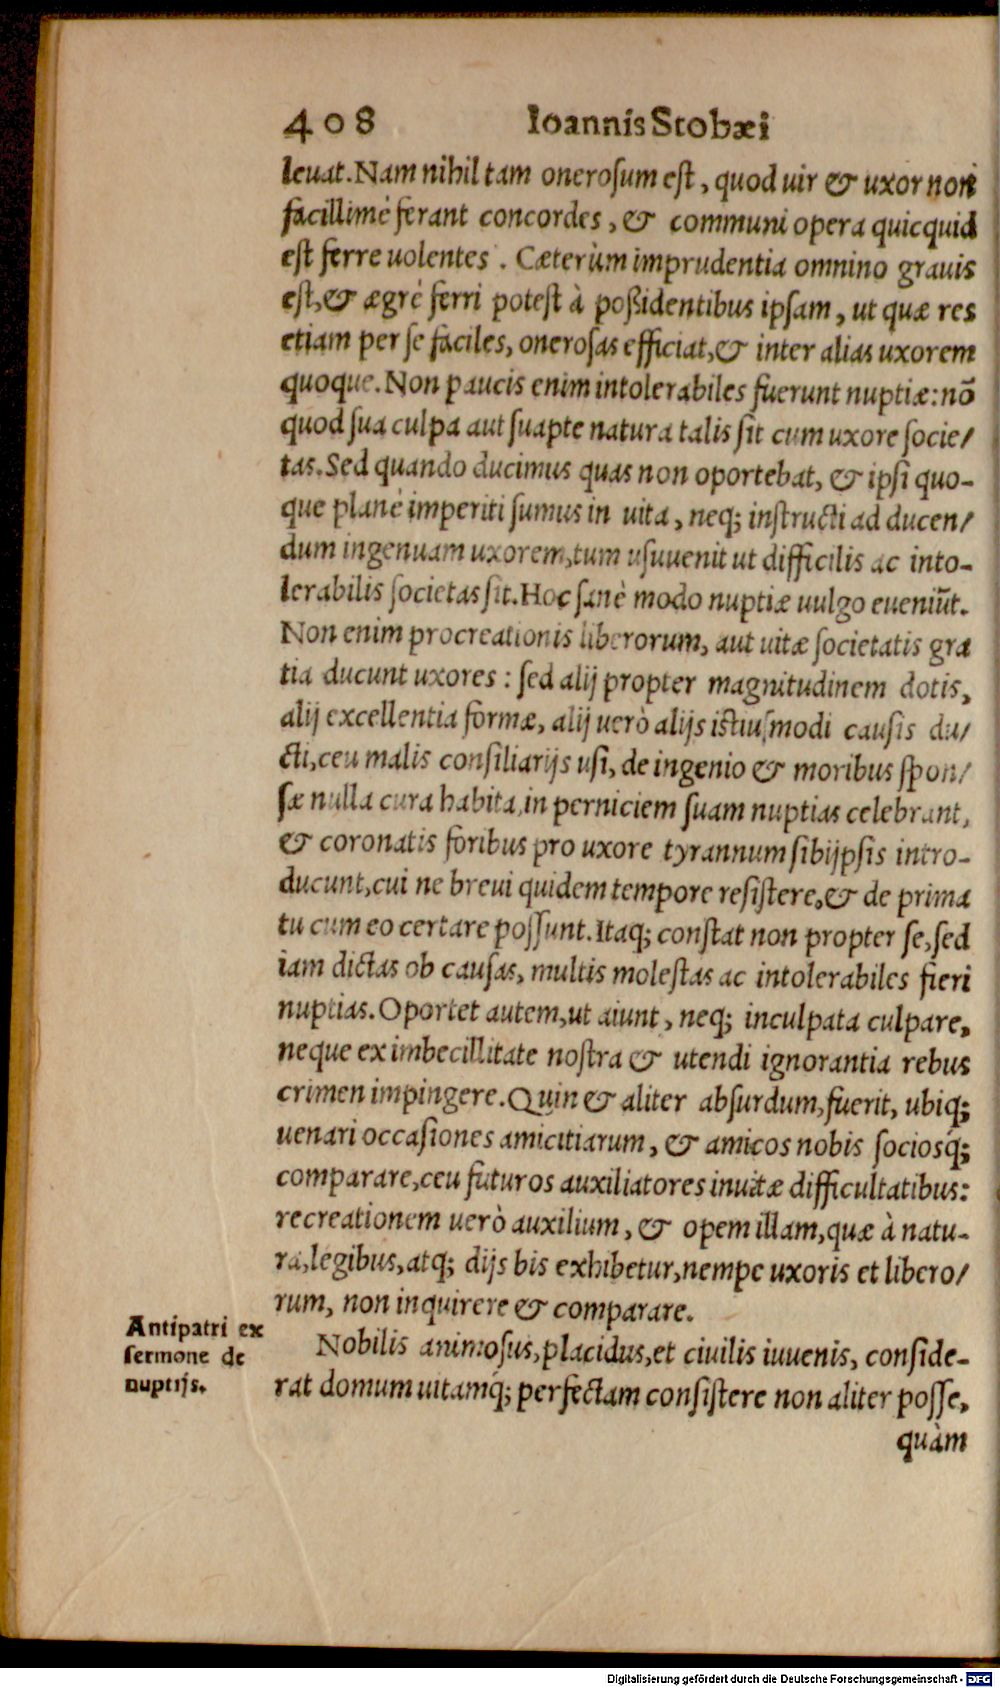 408 Ioannis Stobæi
leuat. Nam nihil tam onerosum est, quod uir & uxor non
facillimè ferant concordes, & communi opera quicquid
est ferre uolentes. Cæterùm imprudentia omnino grauis
est, & ægrè ferri potest à poßidentibus ipsam, ut quæ res
etiam per se faciles, onerosas efficiat, & inter alias uxorem
quoque. Non paucis enim intolerabiles fuerunt nuptiæ: nō
quod sua culpa aut suapte natura talis sit cum uxore socie/
tas. Sed quando ducimus quas non oportebat, & ipsi quo-
que planè imperiti sumus in uita, neq; instructi ad ducen/
dum ingenuam uxorem, tum usuuenit ut difficilis ac into-
lerabilis societas sit. Hoc sanè modo nuptiæ uulgo eueniūt.
Non enim procreationis liberorum, aut uitæ societatis gra
tia ducunt uxores: sed alij propter magnitudinem dotis,
alij excellentia formæ, alij uerò alijs istiusmodi causis du/
cti, ceu malis consiliarijs usi, de ingenio & moribus spon/
sæ nulla cura habita, in perniciem suam nuptias celebrant,
& coronatis foribus pro uxore tyrannum sibijpsis intro-
ducunt, cui ne breui quidem tempore resistere, & de prima
tu cum eo certare possunt. Itaq; constat non propter se, sed
iam dictas ob causas, multis molestas ac intolerabiles fieri
nuptias. Oportet autem, ut aiunt, neq; inculpata culpare,
neque ex imbecillitate nostra & utendi ignorantia rebus
crimen impingere. Quin & aliter absurdum, fuerit, ubiq;
uenari occasiones amicitiarum, & amicos nobis sociosq́;
comparare, ceu futuros auxiliatores inuitæ difficultatibus:
recreationem uerò auxilium, & opem illam, quæ à natu-
ra, legibus, atq; dijs bis exhibetur, nempe uxoris et libero/
rum, non inquirere & comparare.
Antipatri ex
sermone de
nuptijs.
Nobilis animosus, placidus, et ciuilis iuuenis, conside-
rat domum uitamq́; perfectam consistere non aliter posse,
quàm
Digitalisierung gefördert durch die Deutsche Forschungsgemeinschaft - DFG